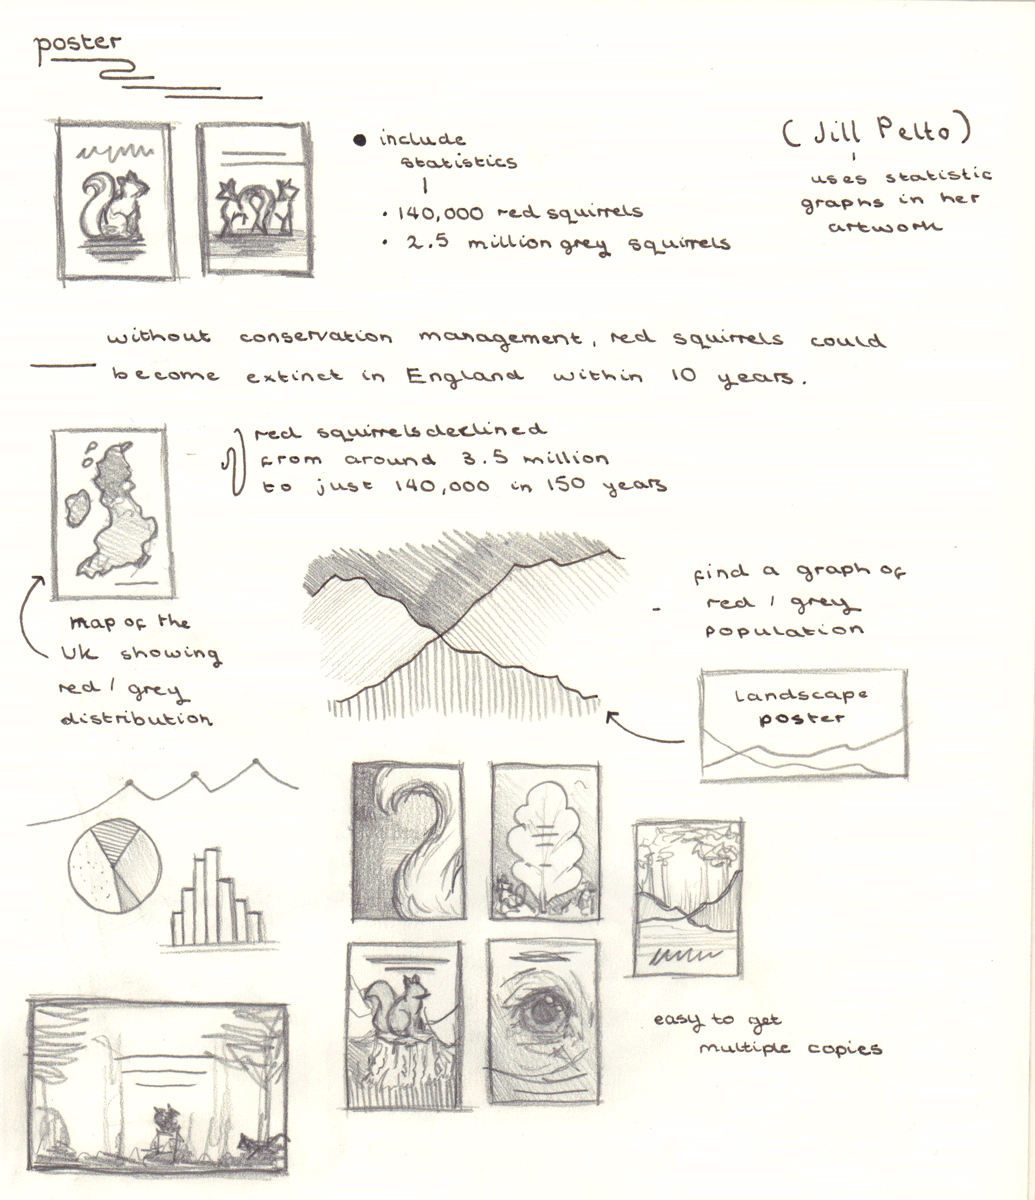 poster
• include
statistics
• 140,000 red squirrels
• 2.5 million grey squirrels
(Jill Pelto)
uses statistic
graphs in her
artwork
without conservation management, red squirrels could
become extinct in England within 10 years.
red squirrels declined
from around 3.5 million
to just 140,000 in 150 years
map of the
UK showing
red / grey
distribution
- find a graph of
red / grey
population
landscape
poster
easy to get
multiple copies